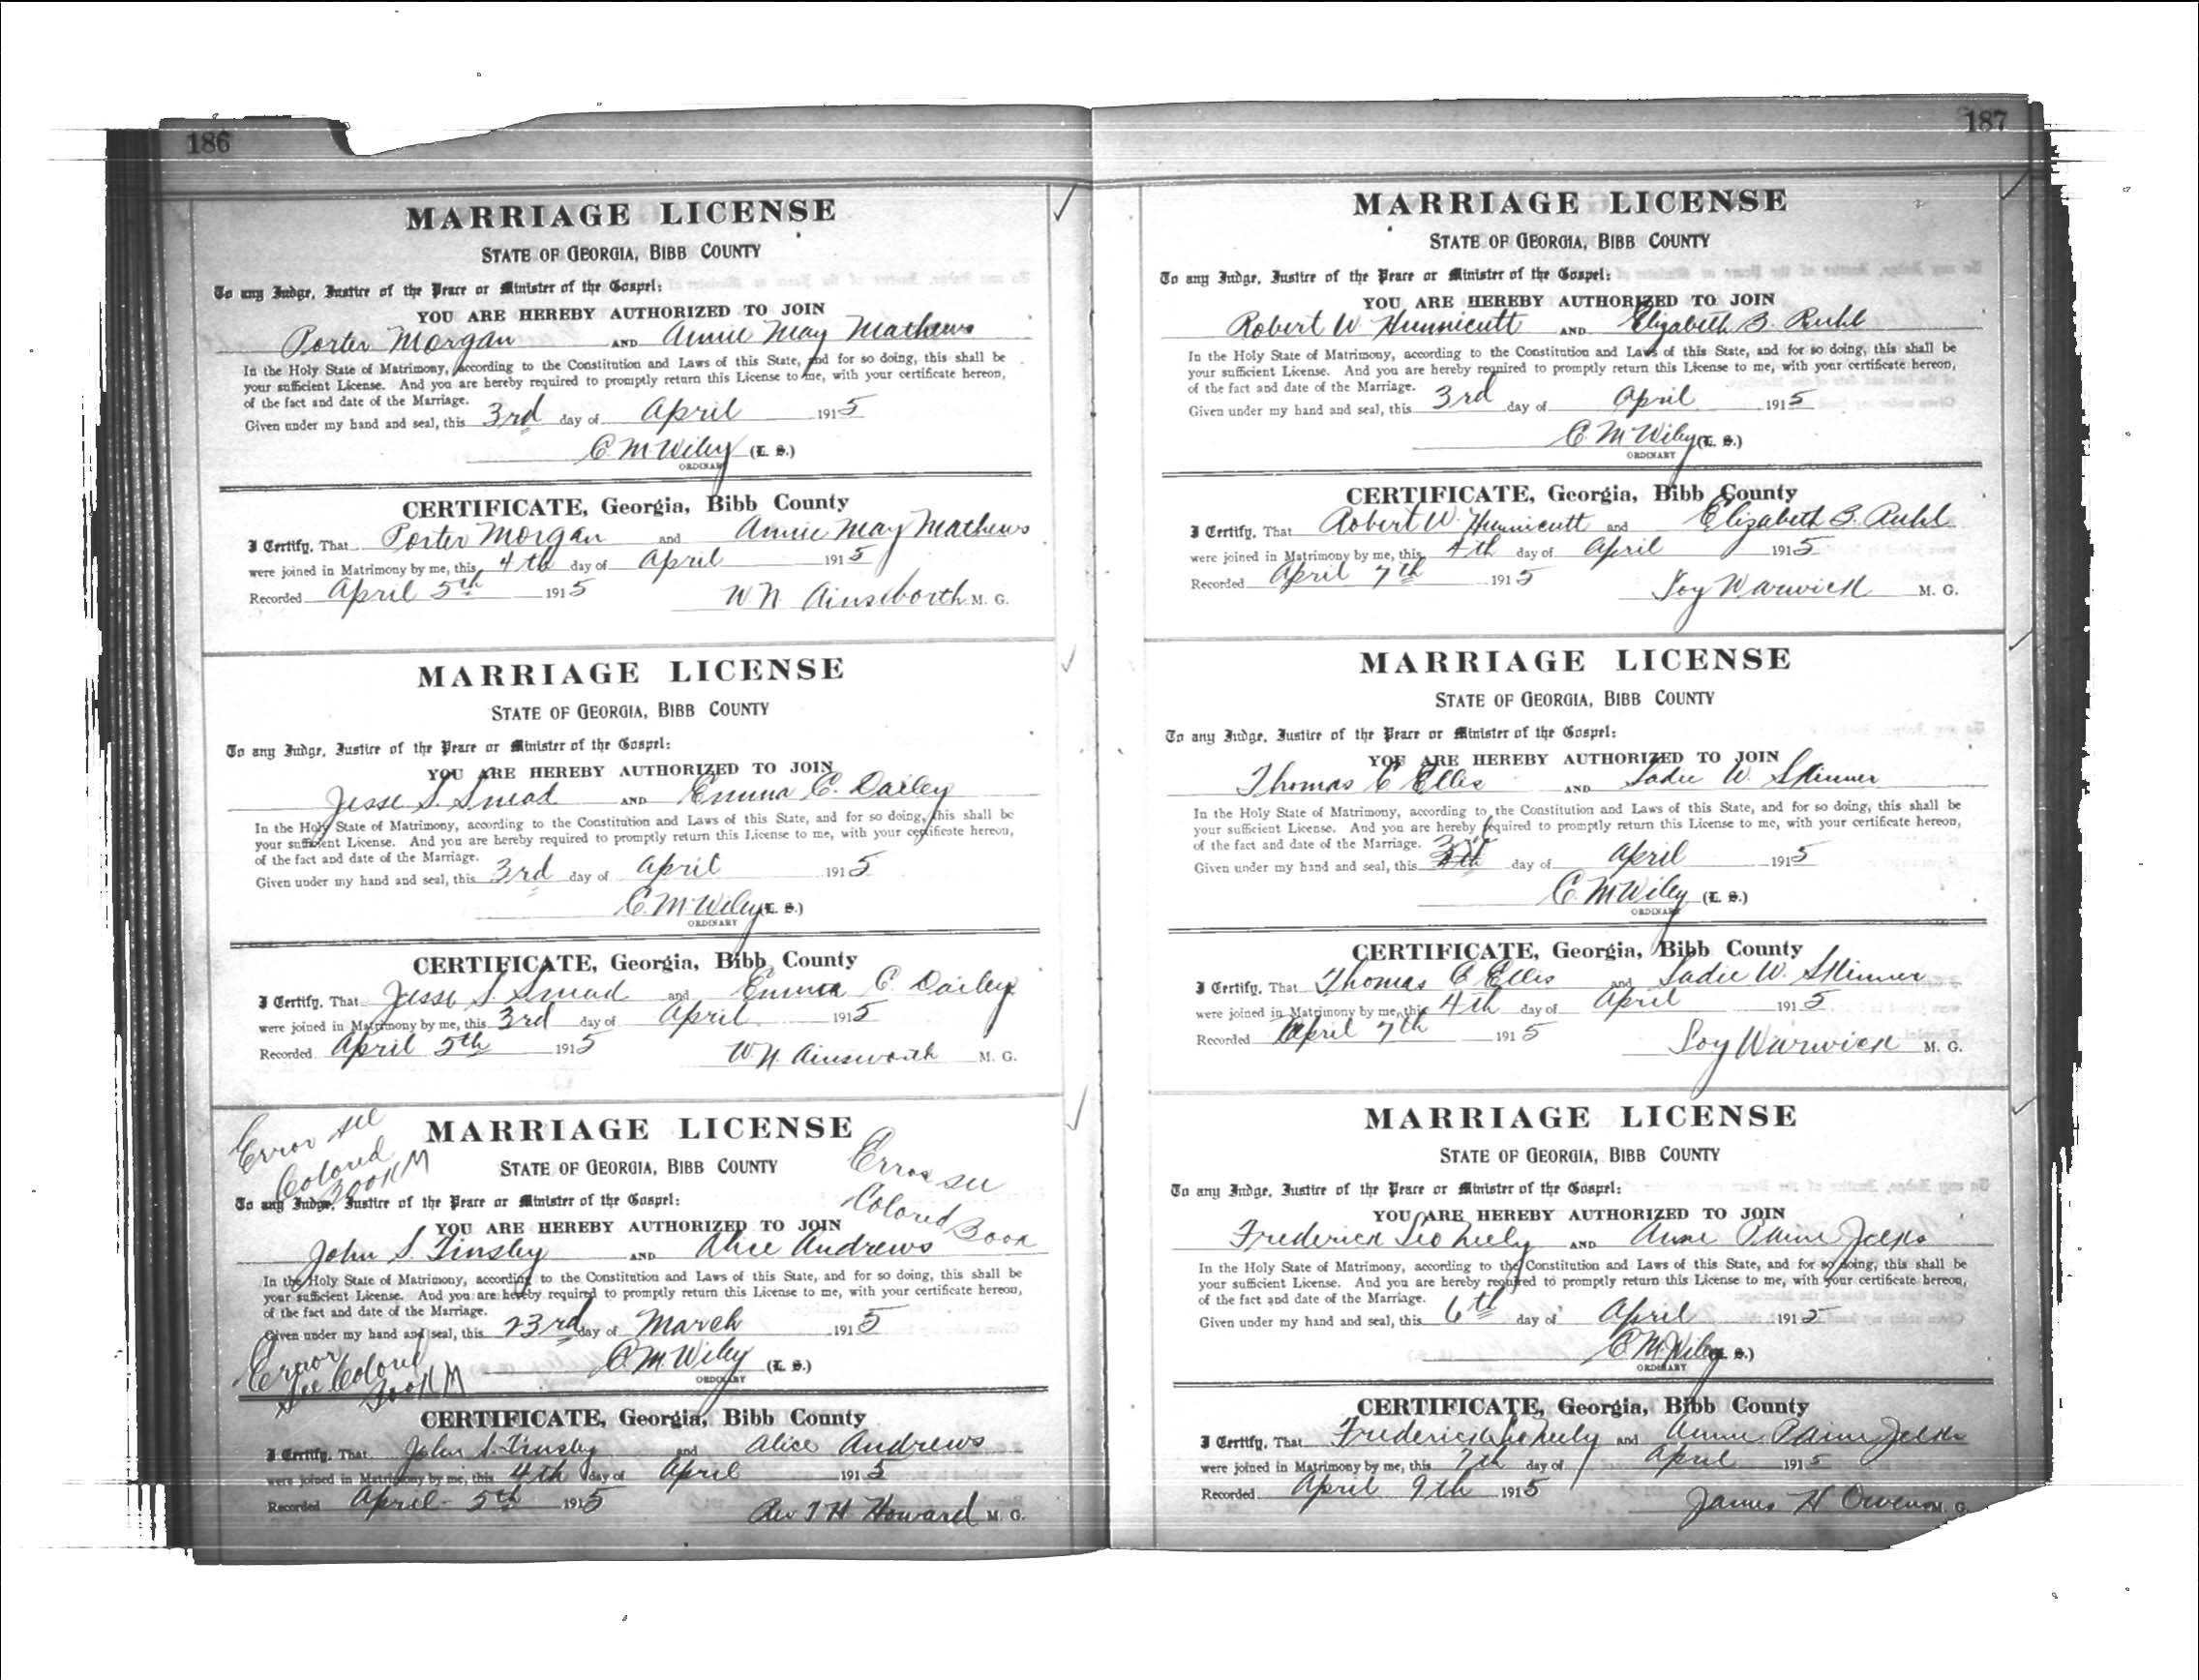 186
MARRIAGE LICENSE
STATE OF GEORGIA, BIBB COUNTY
To any Judge, Justice of the Peace or Minister of the Gospel:
YOU ARE HEREBY AUTHORIZED TO JOIN
Porter Morgan AND Annie May Mathews
In the Holy State of Matrimony, according to the Constitution and Laws of this State, and for so doing, this shall be
your sufficient License. And you are hereby required to promptly return this License to me, with your certificate hereon,
of the fact and date of the Marriage.
Given under my hand and seal, this 3rd day of April 1915
C. M. Wiley (L. S.)
ORDINARY
CERTIFICATE, Georgia, Bibb County
I Certify, That Porter Morgan and Annie May Mathews
were joined in Matrimony by me, this 4th day of April 1915
Recorded April 5th 1915 W. N. Ainsworth M. G.
MARRIAGE LICENSE
STATE OF GEORGIA, BIBB COUNTY
To any Judge, Justice of the Peace or Minister of the Gospel:
YOU ARE HEREBY AUTHORIZED TO JOIN
Jesse S. Smead AND Emma C. Dailey
In the Holy State of Matrimony, according to the Constitution and Laws of this State, and for so doing, this shall be
your sufficient License. And you are hereby required to promptly return this License to me, with your certificate hereon,
of the fact and date of the Marriage.
Given under my hand and seal, this 3rd day of April 1915
C. M. Wiley (L. S.)
ORDINARY
CERTIFICATE, Georgia, Bibb County
I Certify, That Jesse S. Smead and Emma C. Dailey
were joined in Matrimony by me, this 3rd day of April 1915
Recorded April 5th 1915 W. N. Ainsworth M. G.
Error see
Colored
Book M
MARRIAGE LICENSE
STATE OF GEORGIA, BIBB COUNTY
Error see
Colored Book
To any Judge, Justice of the Peace or Minister of the Gospel:
YOU ARE HEREBY AUTHORIZED TO JOIN
John S. Tinsley AND Alice Andrews
In the Holy State of Matrimony, according to the Constitution and Laws of this State, and for so doing, this shall be
your sufficient License. And you are hereby required to promptly return this License to me, with your certificate hereon,
of the fact and date of the Marriage.
Given under my hand and seal, this 23rd day of March 1915
Error
See Colored
Book M
C. M. Wiley (L. S.)
ORDINARY
CERTIFICATE, Georgia, Bibb County
I Certify, That John S. Tinsley and Alice Andrews
were joined in Matrimony by me, this 4th day of April 1915
Recorded April 5th 1915 Rev T H Howard M. G.
187
MARRIAGE LICENSE
STATE OF GEORGIA, BIBB COUNTY
To any Judge, Justice of the Peace or Minister of the Gospel:
YOU ARE HEREBY AUTHORIZED TO JOIN
Robert W. Hunnicutt AND Elizabeth B. Ruhl
In the Holy State of Matrimony, according to the Constitution and Laws of this State, and for so doing, this shall be
your sufficient License. And you are hereby required to promptly return this License to me, with your certificate hereon,
of the fact and date of the Marriage.
Given under my hand and seal, this 3rd day of April 1915
C. M. Wiley (L. S.)
ORDINARY
CERTIFICATE, Georgia, Bibb County
I Certify, That Robert W. Hunnicutt and Elizabeth B. Ruhl
were joined in Matrimony by me, this 4th day of April 1915
Recorded April 7th 1915 Loy Warwick M. G.
MARRIAGE LICENSE
STATE OF GEORGIA, BIBB COUNTY
To any Judge, Justice of the Peace or Minister of the Gospel:
YOU ARE HEREBY AUTHORIZED TO JOIN
Thomas C Ellis AND Sadie W. Skinner
In the Holy State of Matrimony, according to the Constitution and Laws of this State, and for so doing, this shall be
your sufficient License. And you are hereby required to promptly return this License to me, with your certificate hereon,
of the fact and date of the Marriage.
Given under my hand and seal, this 3rd day of April 1915
C. M. Wiley (L. S.)
ORDINARY
CERTIFICATE, Georgia, Bibb County
I Certify, That Thomas C Ellis and Sadie W. Skinner
were joined in Matrimony by me, this 4th day of April 1915
Recorded April 7th 1915 Loy Warwick M. G.
MARRIAGE LICENSE
STATE OF GEORGIA, BIBB COUNTY
To any Judge, Justice of the Peace or Minister of the Gospel:
YOU ARE HEREBY AUTHORIZED TO JOIN
Frederick Leo Neely AND Anne Paine Jelks
In the Holy State of Matrimony, according to the Constitution and Laws of this State, and for so doing, this shall be
your sufficient License. And you are hereby required to promptly return this License to me, with your certificate hereon,
of the fact and date of the Marriage.
Given under my hand and seal, this 6th day of April 1915
C. M. Wiley (L. S.)
ORDINARY
CERTIFICATE, Georgia, Bibb County
I Certify, That Frederick Leo Neely and Anne Paine Jelks
were joined in Matrimony by me, this 7th day of April 1915
Recorded April 9th 1915 James H Owens M. G.